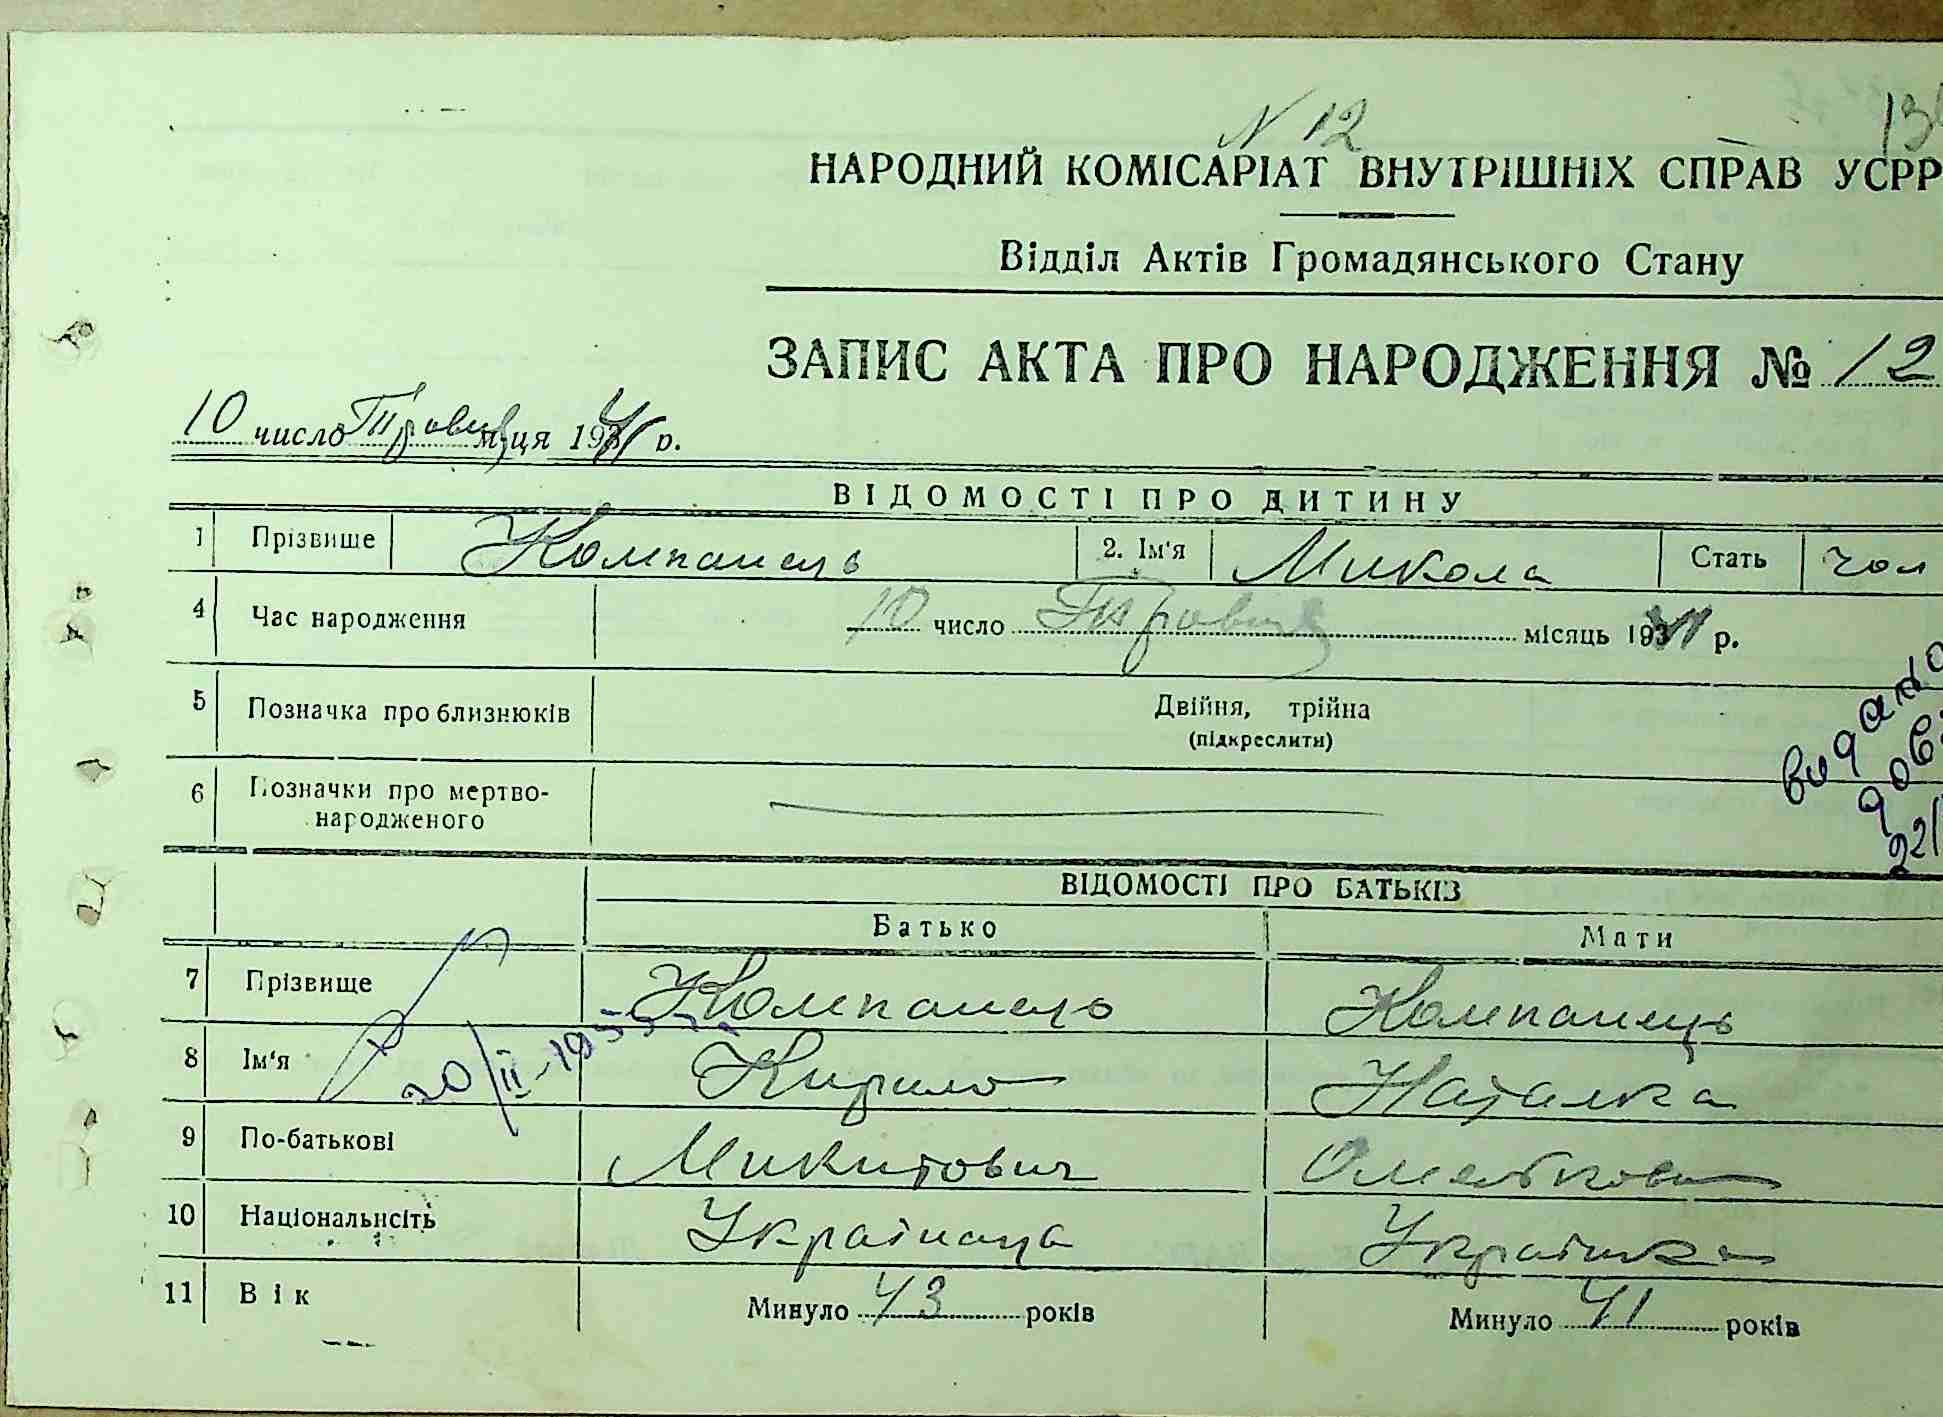 N 12
НАРОДНИЙ КОМІСАРІАТ ВНУТРІШНІХ СПРАВ УСРР
Відділ Актів Громадянського Стану
ЗАПИС АКТА ПРО НАРОДЖЕННЯ № 12
10 число Травня м-ця 1941 р.
ВІДОМОСТІ ПРО ДИТИНУ
1 Прізвище Компанець 2. Ім'я Микола Стать чол
4 Час народження 10 число Травня місяць 1941 р.
5 Позначка про близнюків Двійня, трійна
(підкреслити)
6 Позначки про мертво-
народженого
видано
22/
ВІДОМОСТІ ПРО БАТЬКІВ
Батько Мати
7 Прізвище Компанець Компанець
8 Ім'я Кирило Наталка
20/II-1955
9 По-батькові Микитович
10 Національність Українець Українка
11 Вік Минуло 43 років Минуло 41 років